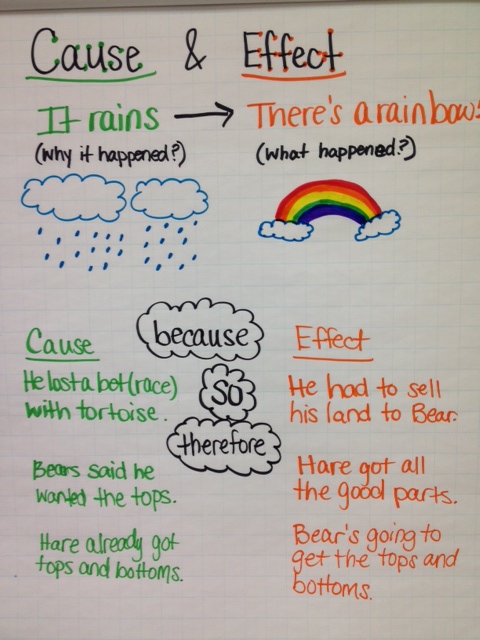 Cause & Effect
It rains → There's a rainbow!
(why it happened?) (what happened?)
because
Cause
Effect
so
therefore
He lost a bet (race)
with tortoise.
He had to sell
his land to Bear.
Bears said he
wanted the tops.
Hare got all
the good parts.
Hare already got
tops and bottoms.
Bear's going to
get the tops and
bottoms.